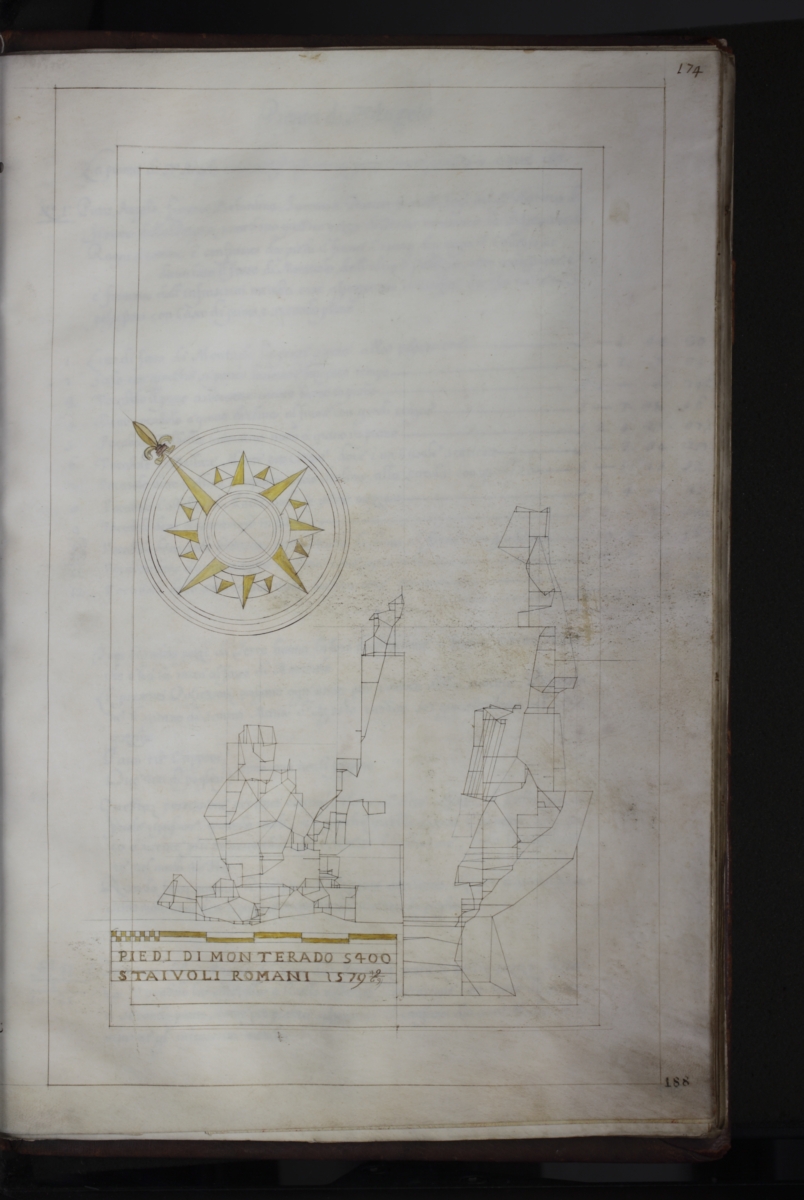 174
PIEDI DI MONTERADO 5400
STAIVOLI ROMANI 1579
188